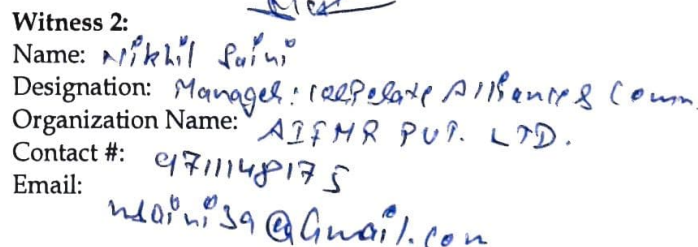 Witness 2:
Name: Nikhil Saini
Designation: Manager: Corporate Alliance & Comm.
Organization Name: AIFMR PVT. LTD.
Contact #: 9711148175
Email: nsaini39@Gmail.com